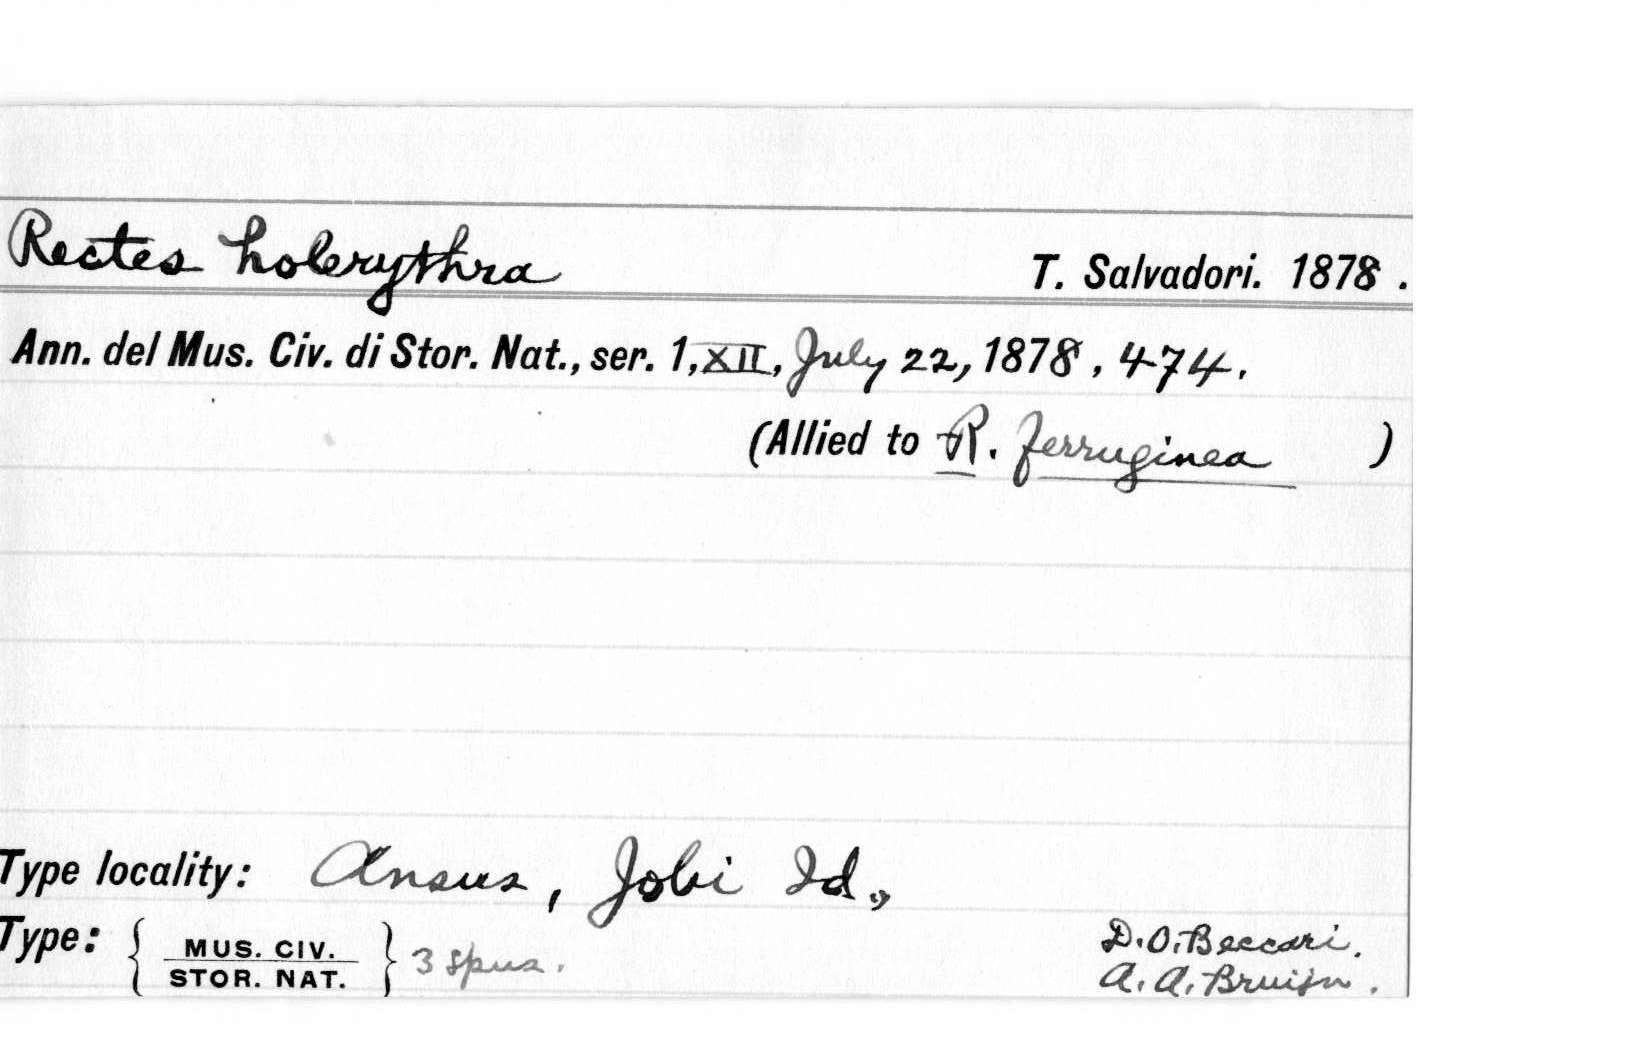 Rectes holerythra T. Salvadori. 1878.
Ann. del Mus. Civ. di Stor. Nat., ser. 1, XII, July 22, 1878, 474.
(Allied to R. ferruginea )
Type locality: Ansus, Jobi Id.,
Type: { MUS. CIV. STOR. NAT. } 3 spns. D.O. Beccari.
A. A. Bruijn.